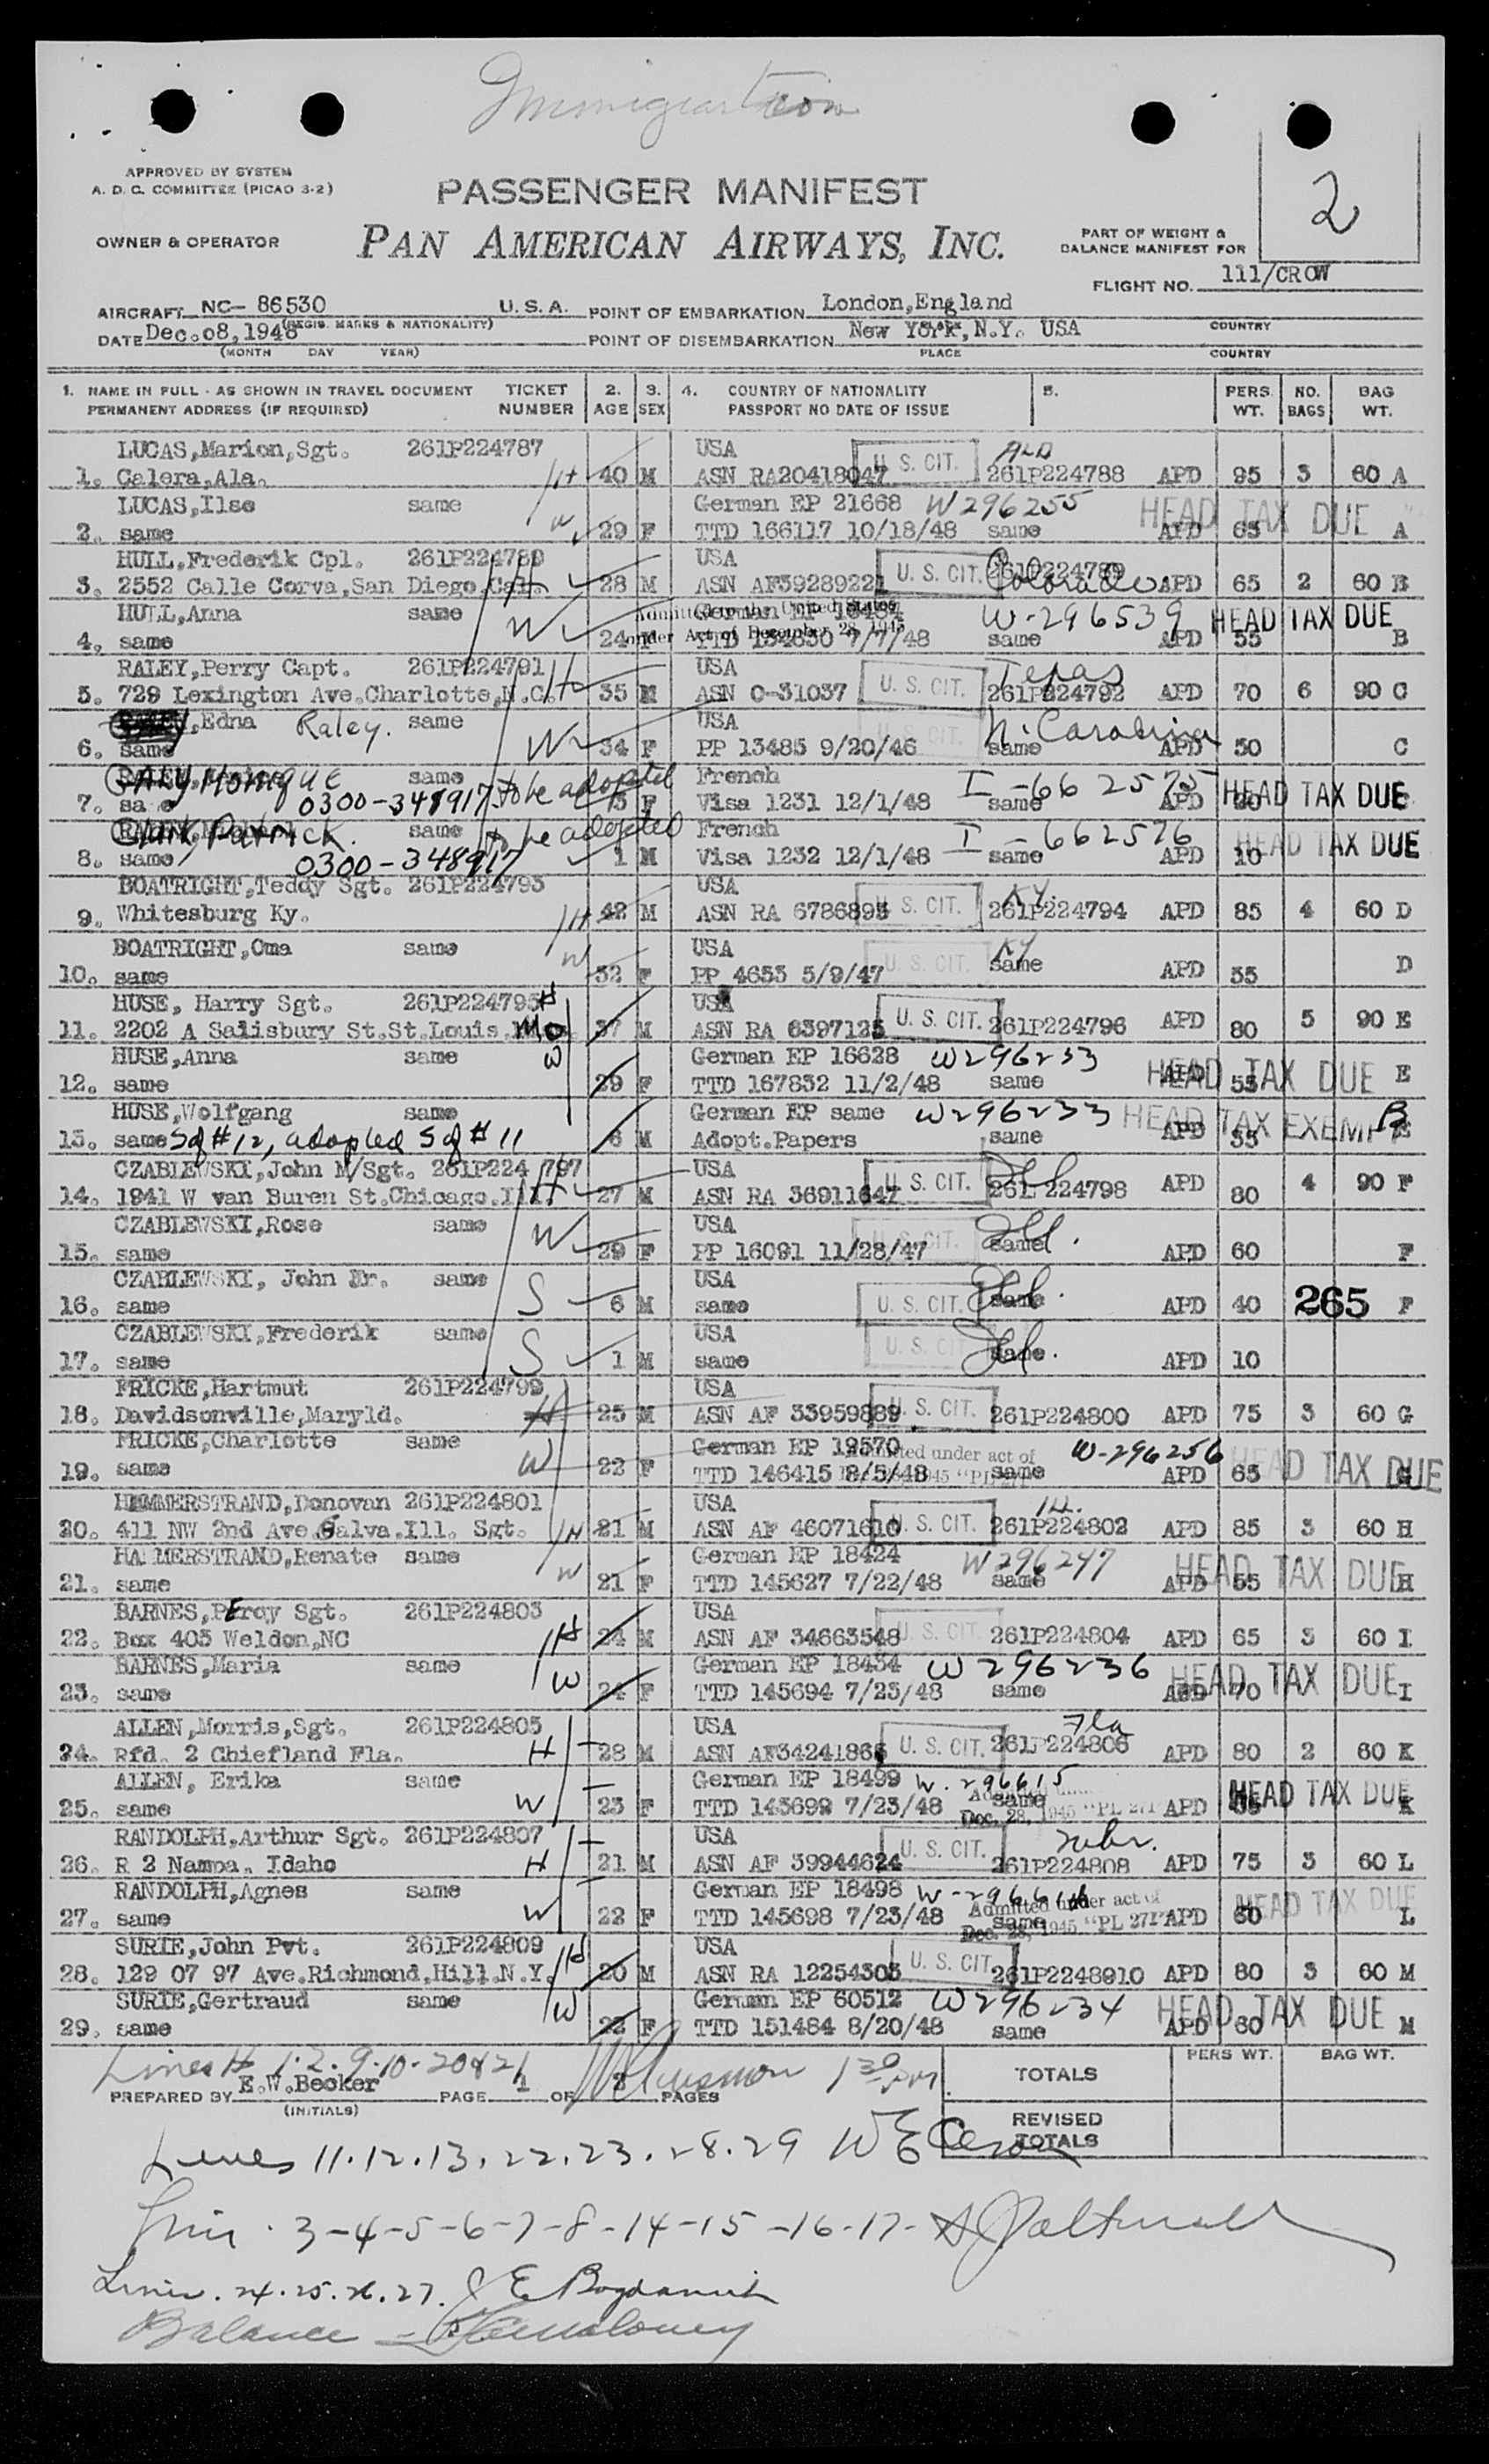 Immigration
APPROVED BY SYSTEM
A. D. C. COMMITTEE (PICAO 3-2)
2
PASSENGER MANIFEST
OWNER & OPERATOR PAN AMERICAN AIRWAYS, INC.
PART OF WEIGHT &
BALANCE MANIFEST FOR
FLIGHT NO. 111/CROW
AIRCRAFT NC- 86530 U.S.A. POINT OF EMBARKATION London,England
(REGIS. MARKS & NATIONALITY) PLACE COUNTRY
DATE Dec.08,1948 POINT OF DISEMBARKATION New York,N.Y. USA
(MONTH DAY YEAR) PLACE COUNTRY
1. NAME IN FULL - AS SHOWN IN TRAVEL DOCUMENT TICKET 2. 3. 4. COUNTRY OF NATIONALITY 5. PERS. NO. BAG
PERMANENT ADDRESS (IF REQUIRED) NUMBER AGE SEX PASSPORT NO DATE OF ISSUE WT. BAGS WT.
LUCAS,Marion,Sgt. 261P224787 USA U. S. CIT.
1. Calera,Ala. H 40 M ASN RA20418047 261P224788 APD 95 3 60 A
LUCAS,Ilse same German EP 21668 W296255 HEAD TAX DUE
2. same W 29 F TTD 166117 10/18/48 same APD 65 A
HULL,Frederik Cpl. 261P224789 USA U. S. CIT. 261P224789
3. 2552 Calle Corva,San Diego,Cal. H 28 M ASN AF39289221 Colorado APD 65 2 60 B
HULL,Anna same Admitted to the United States German EP W-296539 HEAD TAX DUE
4. same W 24 F under Act of December 28, 1945 7/7/48 same APD 55 B
RALEY,Perry Capt. 261P224791 USA U. S. CIT. Texas
5. 729 Lexington Ave.Charlotte,N.C. H 35 M ASN O-31037 261P224792 APD 70 6 90 C
,Edna Raley. same USA U. S. CIT. N. Carolina
6. same W 34 F PP 13485 9/20/46 same APD 50 C
Monique same to be adopted French I-662575 HEAD TAX DUE
7. same 0300-348917 F Visa 1231 12/1/48 same APD
Patrick. same to be adopted French I-662576 HEAD TAX DUE
8. same 0300-348917 1 M Visa 1232 12/1/48 same APD 10
BOATRIGHT,Teddy Sgt. 261P224793 USA U. S. CIT. Ky.
9. Whitesburg Ky. H 42 M ASN RA 6786895 261P224794 APD 85 4 60 D
BOATRIGHT,Oma same USA U. S. CIT. Ky
10. same W 32 F PP 4653 5/9/47 same APD 55 D
HUSE, Harry Sgt. 261P224795 H USA U. S. CIT.
11. 2202 A Salisbury St.St.Louis. Mo 37 M ASN RA 6397125 261P224796 APD 80 5 90 E
HUSE,Anna same W German EP 16628 W296233 HEAD TAX DUE
12. same 29 F TTD 167832 11/2/48 same APD 55 E
HUSE,Wolfgang same German EP same W296233 HEAD TAX EXEMPT
13. same S of #12, adopted S of #11 6 M Adopt.Papers same APD 55 E
CZABLEWSKI,John M/Sgt. 261P224 797 USA U. S. CIT. Ill
14. 1941 W van Buren St.Chicago.Ill. H 27 M ASN RA 36911647 261P224798 APD 80 4 90 F
CZABLEWSKI,Rose same USA U. S. CIT. Ill.
15. same W 29 F PP 16091 11/28/47 same APD 60 F
CZABLEWSKI, John Jr. same USA U. S. CIT. Ill.
16. same S 6 M same same APD 40 265 F
CZABLEWSKI,Frederik same USA U. S. CIT. Ill.
17. same S 1 M same same APD 10
FRICKE,Hartmut 261P224799 USA U. S. CIT.
18. Davidsonville,Maryld. H 25 M ASN AF 33959889 261P224800 APD 75 3 60 G
FRICKE,Charlotte same German EP 19570 Admitted under act of W-296256 HEAD TAX DUE
19. same W 22 F TTD 146415 8/5/48 1945 "PL 271" same APD 65 G
HAMMERSTRAND,Donovan 261P224801 USA U. S. CIT. Ill.
20. 411 NW 2nd Ave Galva.Ill. Sgt. H 21 M ASN AF 46071610 261P224802 APD 85 3 60 H
HAMMERSTRAND,Renate same German EP 18424 W296247 HEAD TAX DUE
21. same W 21 F TTD 145627 7/22/48 same APD 55 H
BARNES,PErcy Sgt. 261P224803 USA U. S. CIT.
22. Box 403 Weldon,NC H 24 M ASN AF 34663548 261P224804 APD 65 3 60 I
BARNES,Maria same German EP 18434 W296236 HEAD TAX DUE
23. same W 24 F TTD 145694 7/23/48 same APD 70 I
ALLEN,Morris,Sgt. 261P224805 USA U. S. CIT. Fla
24. Rfd. 2 Chiefland Fla. H 28 M ASN AF34241865 261P224806 APD 80 2 60 K
ALLEN, Erika same German EP 18499 W-296615 HEAD TAX DUE
25. same W 23 F TTD 145699 7/23/48 same Dec. 28, 1945 "PL 271" APD 55 K
RANDOLPH,Arthur Sgt. 261P224807 USA U. S. CIT. Nebr.
26. R 2 Nampa, Idaho H 21 M ASN AF 39944624 261P224808 APD 75 3 60 L
RANDOLPH,Agnes same German EP 18498 W-296616 Admitted under act of HEAD TAX DUE
27. same W 22 F TTD 145698 7/23/48 same Dec. 28, 1945 "PL 271" APD 60 L
SURIE,John Pvt. 261P224809 USA U. S. CIT.
28. 129 07 97 Ave.Richmond,Hill.N.Y. H 20 M ASN RA 12254303 261P2248910 APD 80 3 60 M
SURIE,Gertraud same German EP 60512 W296234 HEAD TAX DUE
29. same W 22 F TTD 151484 8/20/48 same APD 60 M
Lines # 1.2.9.10-20&21 1:30 PM
PREPARED BY E.W.Becker PAGE 1 OF PAGES TOTALS PERS WT. BAG WT.
(INITIALS)
REVISED TOTALS
Lines 11.12.13.22.23.28.29
Lines 3-4-5-6-7-8-14-15-16-17-
Lines. 24.25.26.27. J E Bogdanich
Balance -